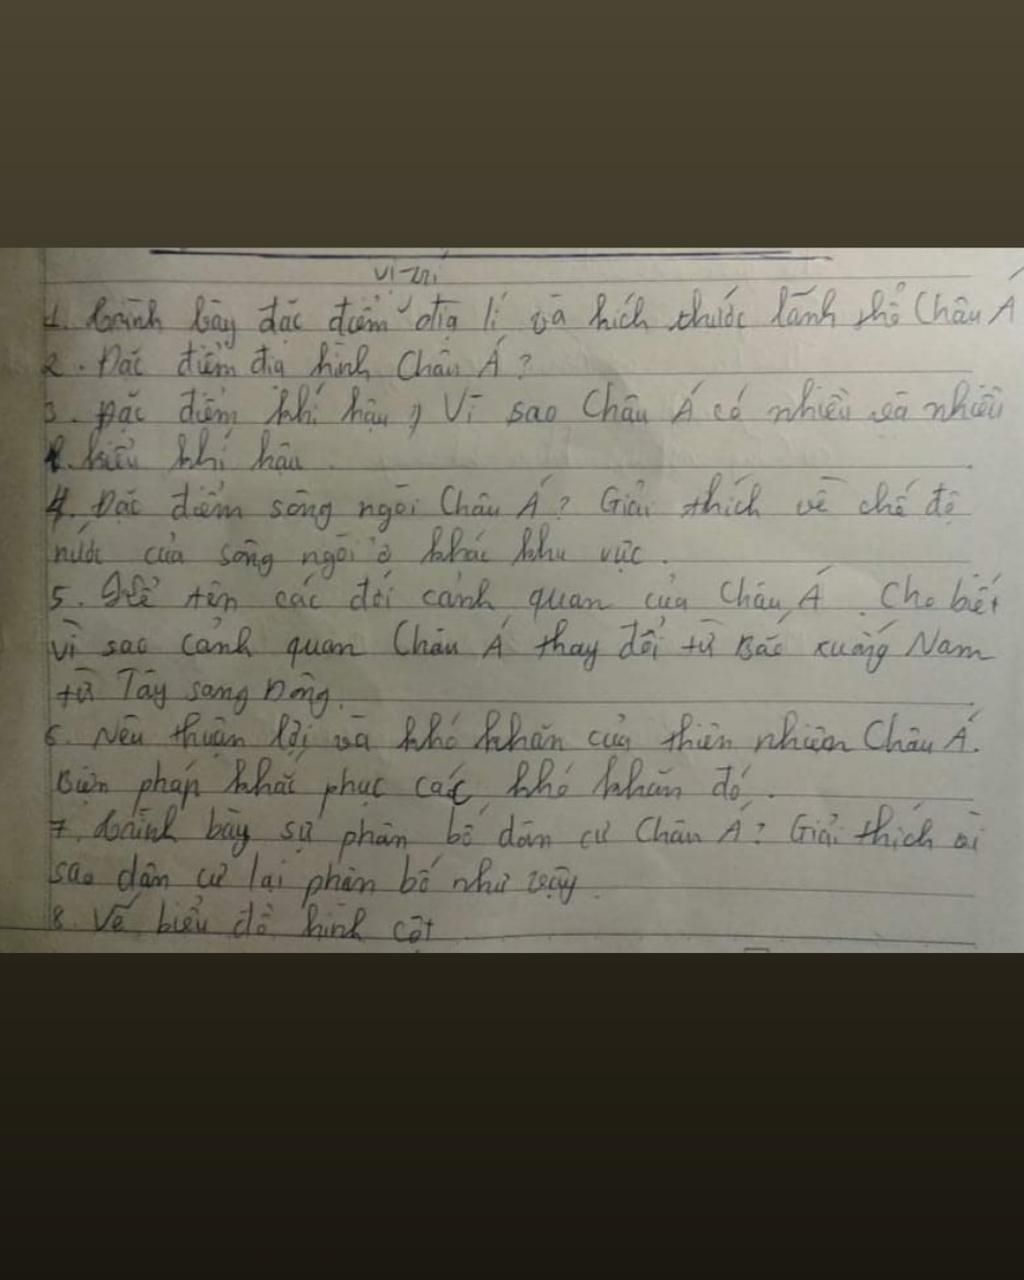 vị trí
1. Trình bày đặc điểm địa lí và kích thước lãnh thổ Châu Á
2. Đặc điểm địa hình Châu Á?
3. Đặc điểm khí hậu, Vì sao Châu Á có nhiều và nhiều
kiểu khí hậu.
4. Đặc điểm sông ngòi Châu Á? Giải thích về chế độ
nước của sông ngòi ở khác khu vực.
5. Kể tên các đới cảnh quan của Châu Á. Cho biết
vì sao cảnh quan Châu Á thay đổi từ Bắc xuống Nam
từ Tây sang Đông.
6. Nêu thuận lợi và khó khăn của thiên nhiên Châu Á.
Biện pháp khắc phục các khó khăn đó.
7. Trình bày sự phân bố dân cư Châu Á? Giải thích vì
sao dân cư lại phân bố như vậy.
8. Vẽ biểu đồ hình cột